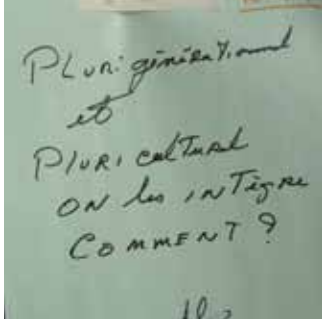 Plurigénérationnel
et
Pluriculturel
on les intègre
comment ?